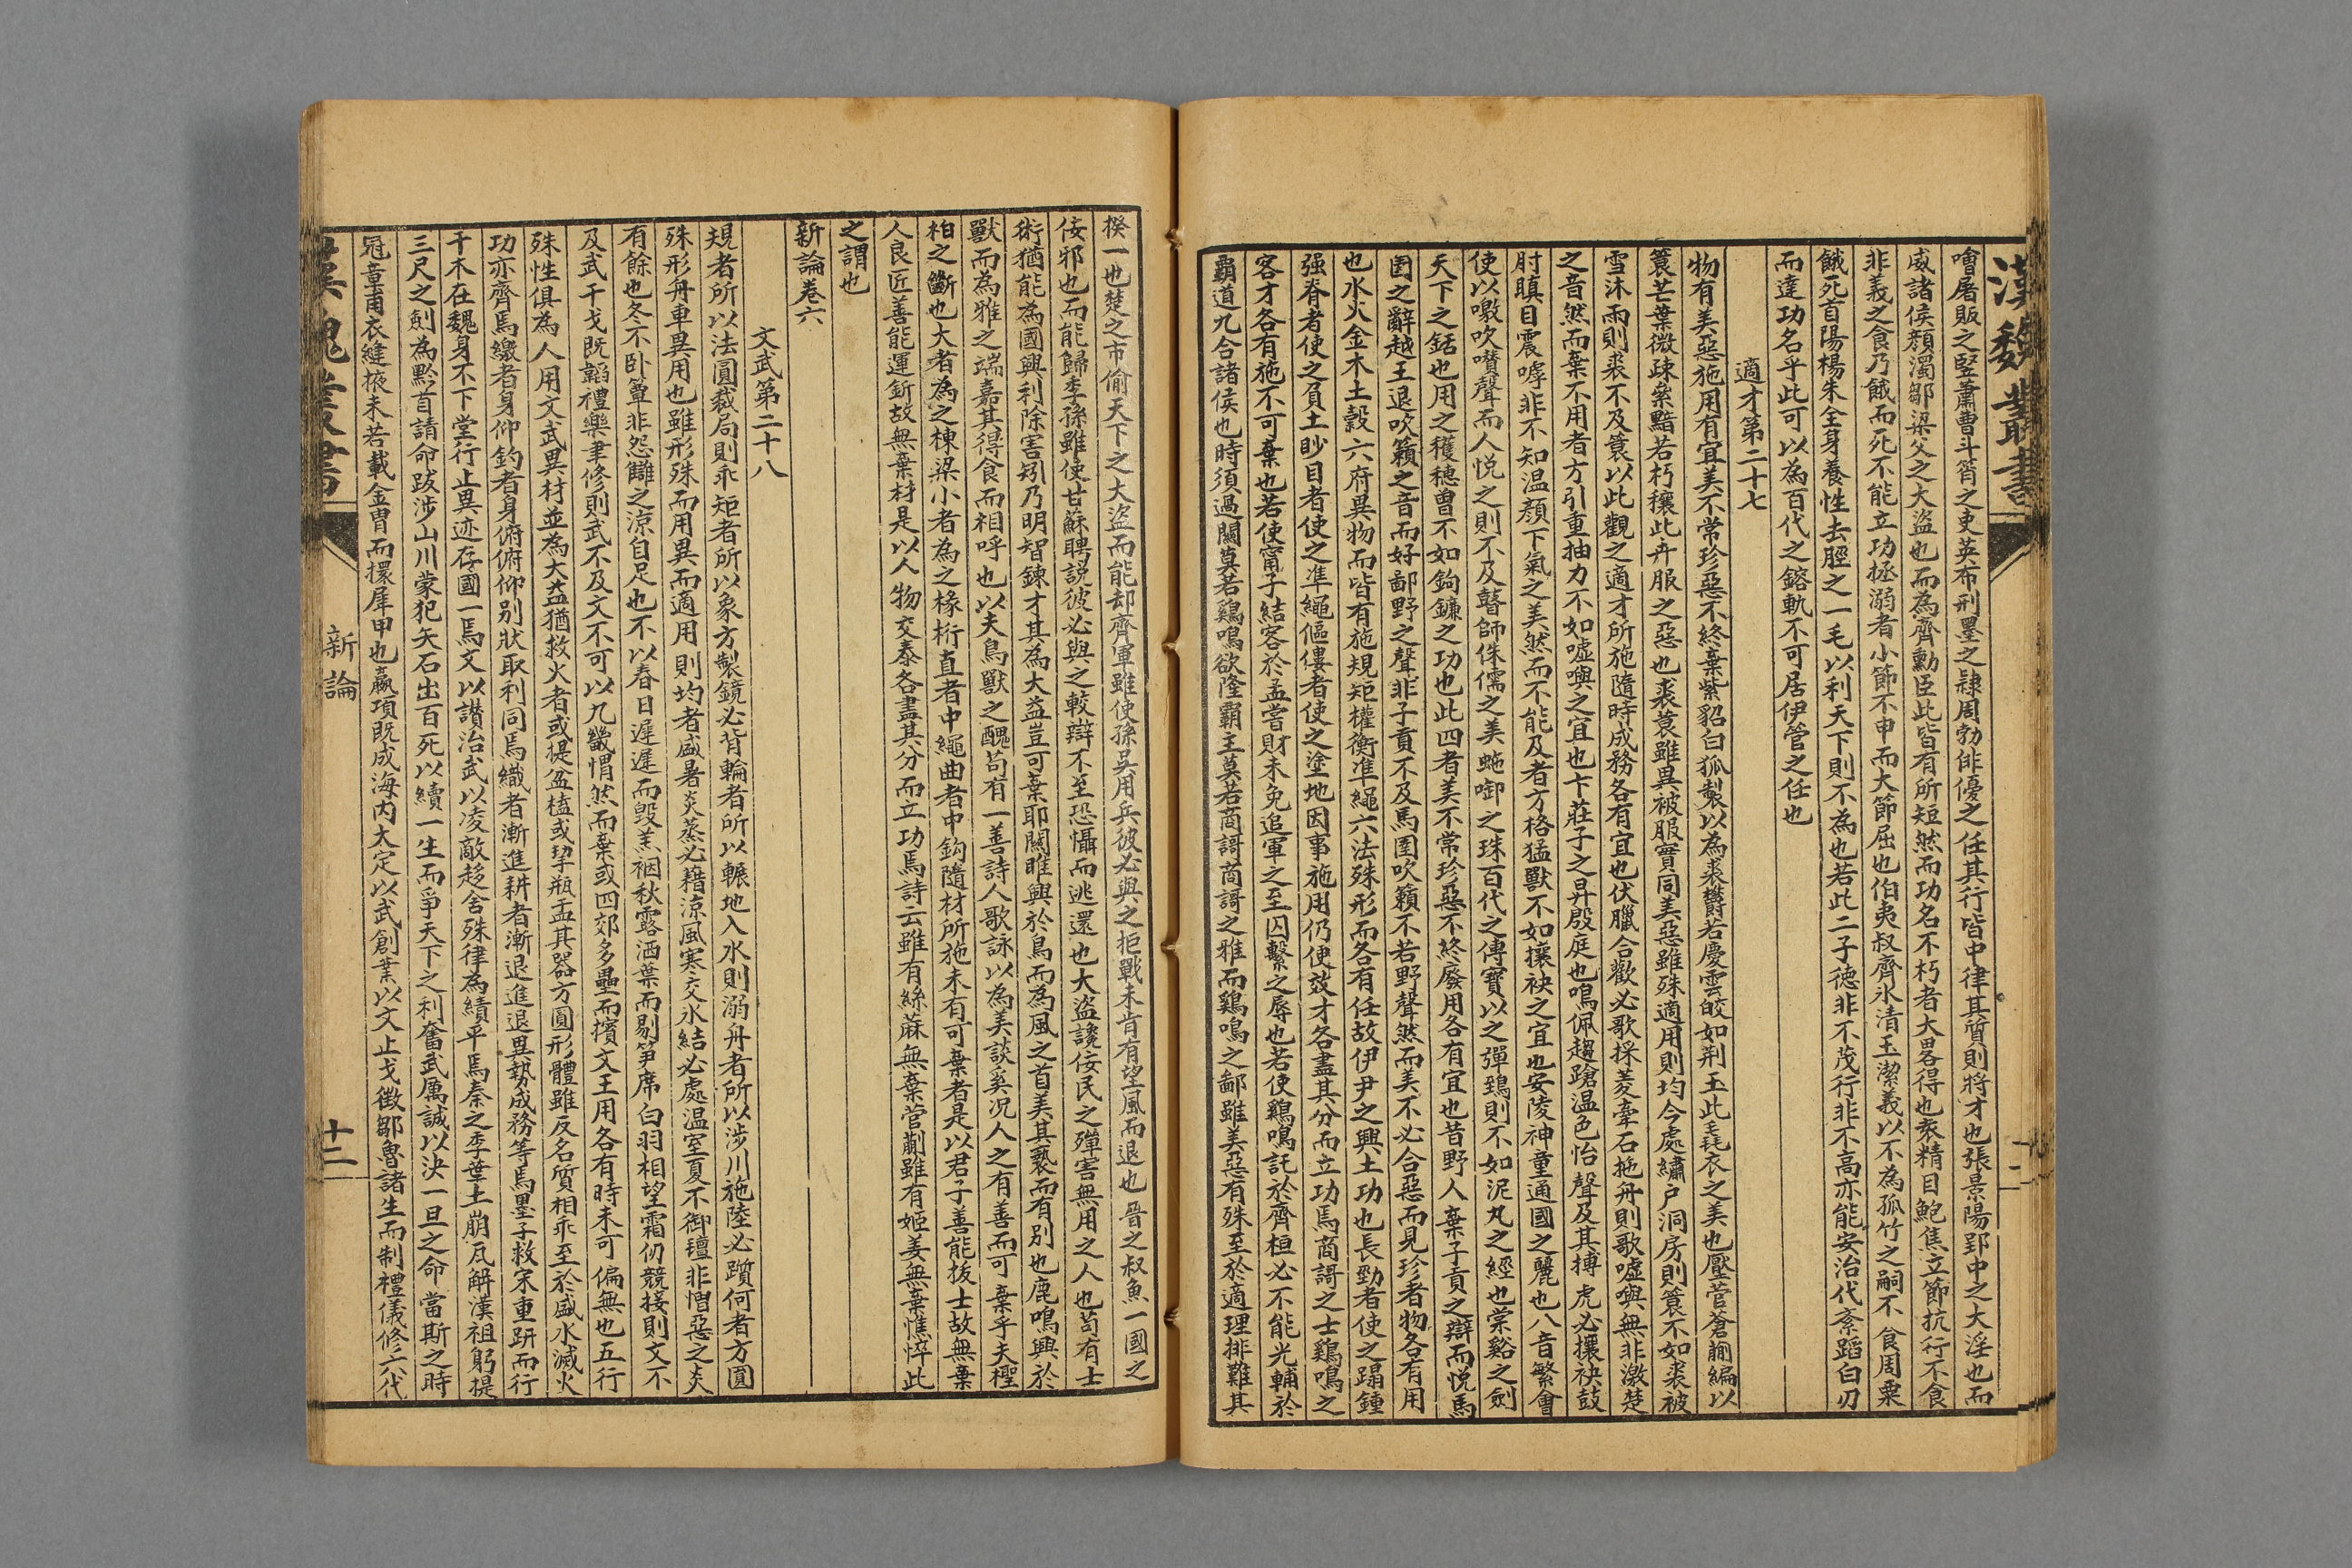 漢魏叢書
噲屠販之竪蕭曹斗筲之吏英布刑墨之隷周勃俳優之任其行皆中律其質則將才也張景陽郢中之大淫也而
威諸侯顏濁鄒梁父之大盜也而為齊勳臣此皆有所短然而功名不朽者大畧得也袁精目鮑焦立節抗行不食
非義之食乃餓而死不能立功拯溺者小節不申而大節屈也伯夷叔齊氷清玉潔義以不為孤竹之嗣不食周粟
餓死首陽楊朱全身養性去脛之一毛以利天下則不為也若此二子徳非不茂行非不高亦能安治代紊蹈白刃
而達功名乎此可以為百代之鎔軌不可居伊管之任也
適才第二十七
物有美惡施用有宜美不常珍惡不終棄紫貂白狐製以為裘鬱若慶雲皎如荆玉此毳衣之美也壓菅蒼蒯編以
蓑芒葉微疎纍黯若朽穰此卉服之惡也裘蓑雖異被服實同美惡雖殊適用則均今處繡户洞房則蓑不如裘被
雪沐雨則裘不及蓑以此觀之適才所施隨時成務各有宜也伏臘合歡必歌採菱牽石拖舟則歌噓㗱無非激楚
之音然而棄不用者方引重抽力不如噓㗱之宜也卞莊子之昇殷庭也鳴佩趨蹌温色怡聲及其搏虎必攘袂鼓
肘瞋目震嘑非不知温顏下氣之美然而不能及者方格猛獸不如攘袂之宜也安陵神童通國之麗也八音繁會
使以噭吹噴聲而人悦之則不及瞽師侏儒之美虵啣之珠百代之傳寶以之彈鵄則不如泥丸之經也棠谿之劍
天下之銛也用之穫穗曽不如鉤鎌之功也此四者美不常珍惡不終廢用各有宜也昔野人棄子貢之辯而悦馬
圉之辭越王退吹籟之音而好鄙野之聲非子貢不及馬圉吹籟不若野聲然而美不必合惡而見珍者物各有用
也水火金木土穀六府異物而皆有施規矩權衡凖繩六法殊形而各有任故伊尹之興土功也長勁者使之蹋鍾
强脊者使之負土眇目者使之凖繩傴僂者使之塗地因事施用仍便效才各盡其分而立功焉商謌之士鷄鳴之
客才各有施不可棄也若使甯子結客於孟嘗財未免追軍之至囚繫之辱也若使鷄鳴託於齊桓必不能光輔於
霸道九合諸侯也時須過關莫若鷄鳴欲隆霸主莫若商謌商謌之雅而鷄鳴之鄙雖美惡有殊至於適理排難其
揆一也楚之市偷天下之大盜而能却齊軍雖使孫吳用兵彼必與之拒戰未肯有望風而退也晉之叔魚一國之
佞邪也而能歸季孫雖使甘蘇聘説彼必與之較辯不至恐懾而逃還也大盜讒佞民之殫害無用之人也苟有士
術猶能為國興利除害矧乃明智鍊才其為大益豈可棄耶關雎興於鳥而為風之首美其褻而有别也鹿鳴興於
獸而為雅之端嘉其得食而相呼也以夫鳥獸之醜苟有一善詩人歌詠以為美談奚况人之有善而可棄乎夫樫
柏之斷也大者為之棟梁小者為之椽桁直者中繩曲者中鈎隨材所施未有可棄者是以君子善能抜士故無棄
人良匠善能運斲故無棄材是以人物交泰各盡其分而立功焉詩云雖有絲蔴無棄菅蒯雖有姬姜無棄憔悴此
之謂也
新論卷六
文武第二十八
規者所以法圓裁局則乖矩者所以象方製鏡必背輪者所以輾地入水則溺舟者所以涉川施陸必躓何者方圓
殊形舟車異用也雖形殊而用異而適用則均者盛暑炎蒸必藉涼風寒交氷結必處温室夏不御氊非憎惡之炎
有餘也冬不卧簟非怨讎之涼自足也不以春日遲遲而毁羔裀秋露洒葉而剔笋席白羽相望霜仞競接則文不
及武干戈既韜禮樂聿修則武不及文不可以九畿愲然而棄或四郊多壘而擯文王用各有時未可偏無也五行
殊性俱為人用文武異材並為大益猶救火者或提盆榼或挈瓶盂其器方圓形體雖反名質相乖至於盛水滅火
功亦齊焉繳者身仰釣者身俯俯仰别狀取利同焉織者漸進耕者漸退進退異勢成務等焉墨子救宋重趼而行
干木在魏身不下堂行止異迹存國一焉文以讃治武以凌敵趍舍殊律為績平焉秦之季葉土崩瓦解漢祖躬提
三尺之劍為黔首請命跋涉山川蒙犯矢石出百死以續一生而爭天下之利奮武厲誠以決一旦之命當斯之時
冠章甫衣縫掖未若載金冑而擐犀甲也嬴項既成海内大定以武創業以文止戈徴鄒魯諸生而制禮儀修六代
漢魏叢書
新論
十二